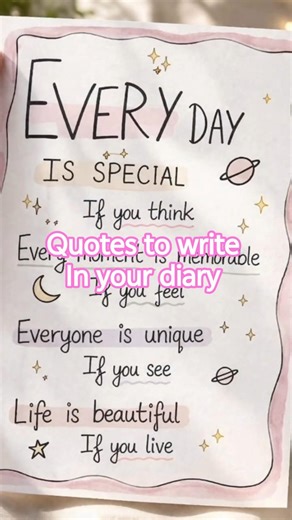 EVERY DAY
IS SPECIAL
If you think
Every moment is memorable
If you feel
Everyone is unique
If you see
Life is beautiful
If you live
Quotes to write
In your diary